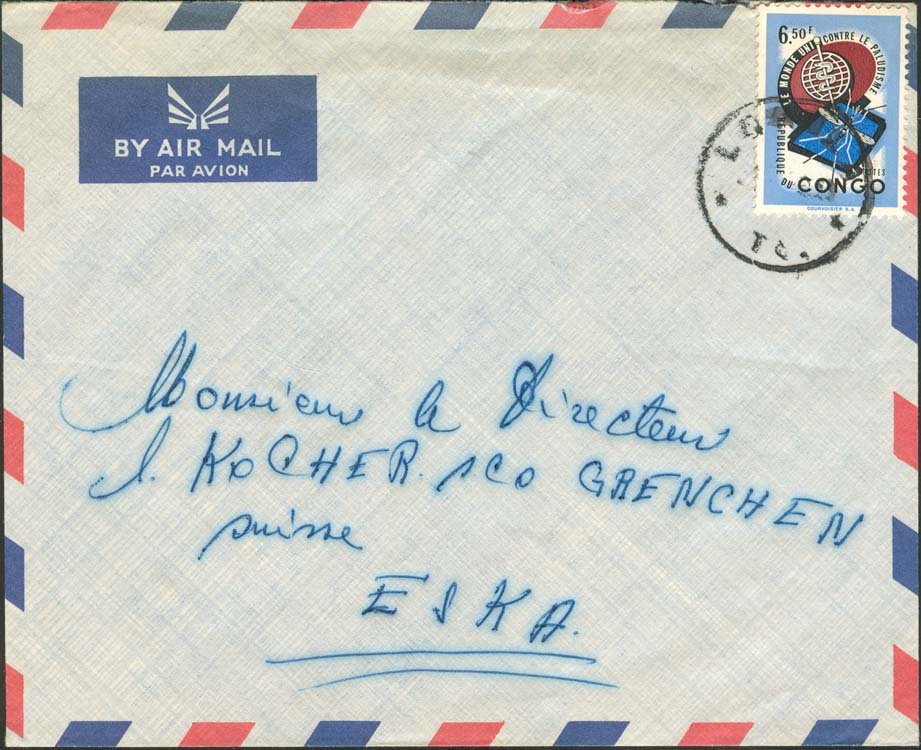 BY AIR MAIL
PAR AVION
6.50F
LE MONDE UNI CONTRE LE PALUDISME
RÉPUBLIQUE DU CONGO
COURVOISIER S.A.
Monsieur le Directeur
S. KOCHER. &Co GRENCHEN
suisse
ESKA.